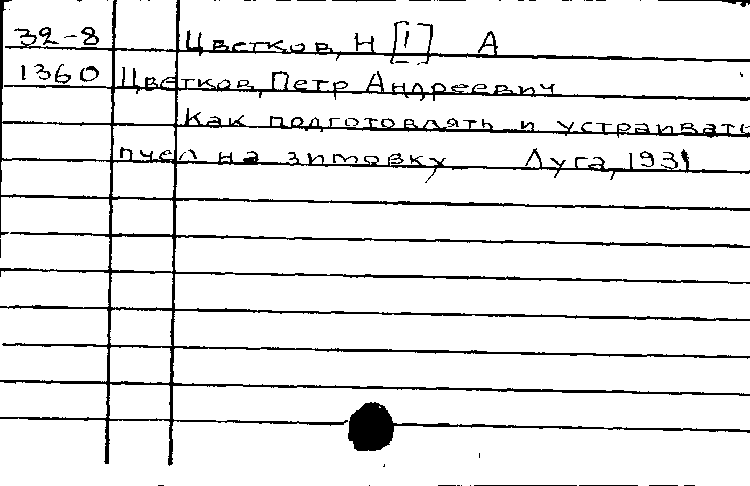 32-8 Цветков, Н [!] А
1360 Цветков, Петр Андреевич
Как подготовлять и устраивать
пчел на зимовку Луга, 1931